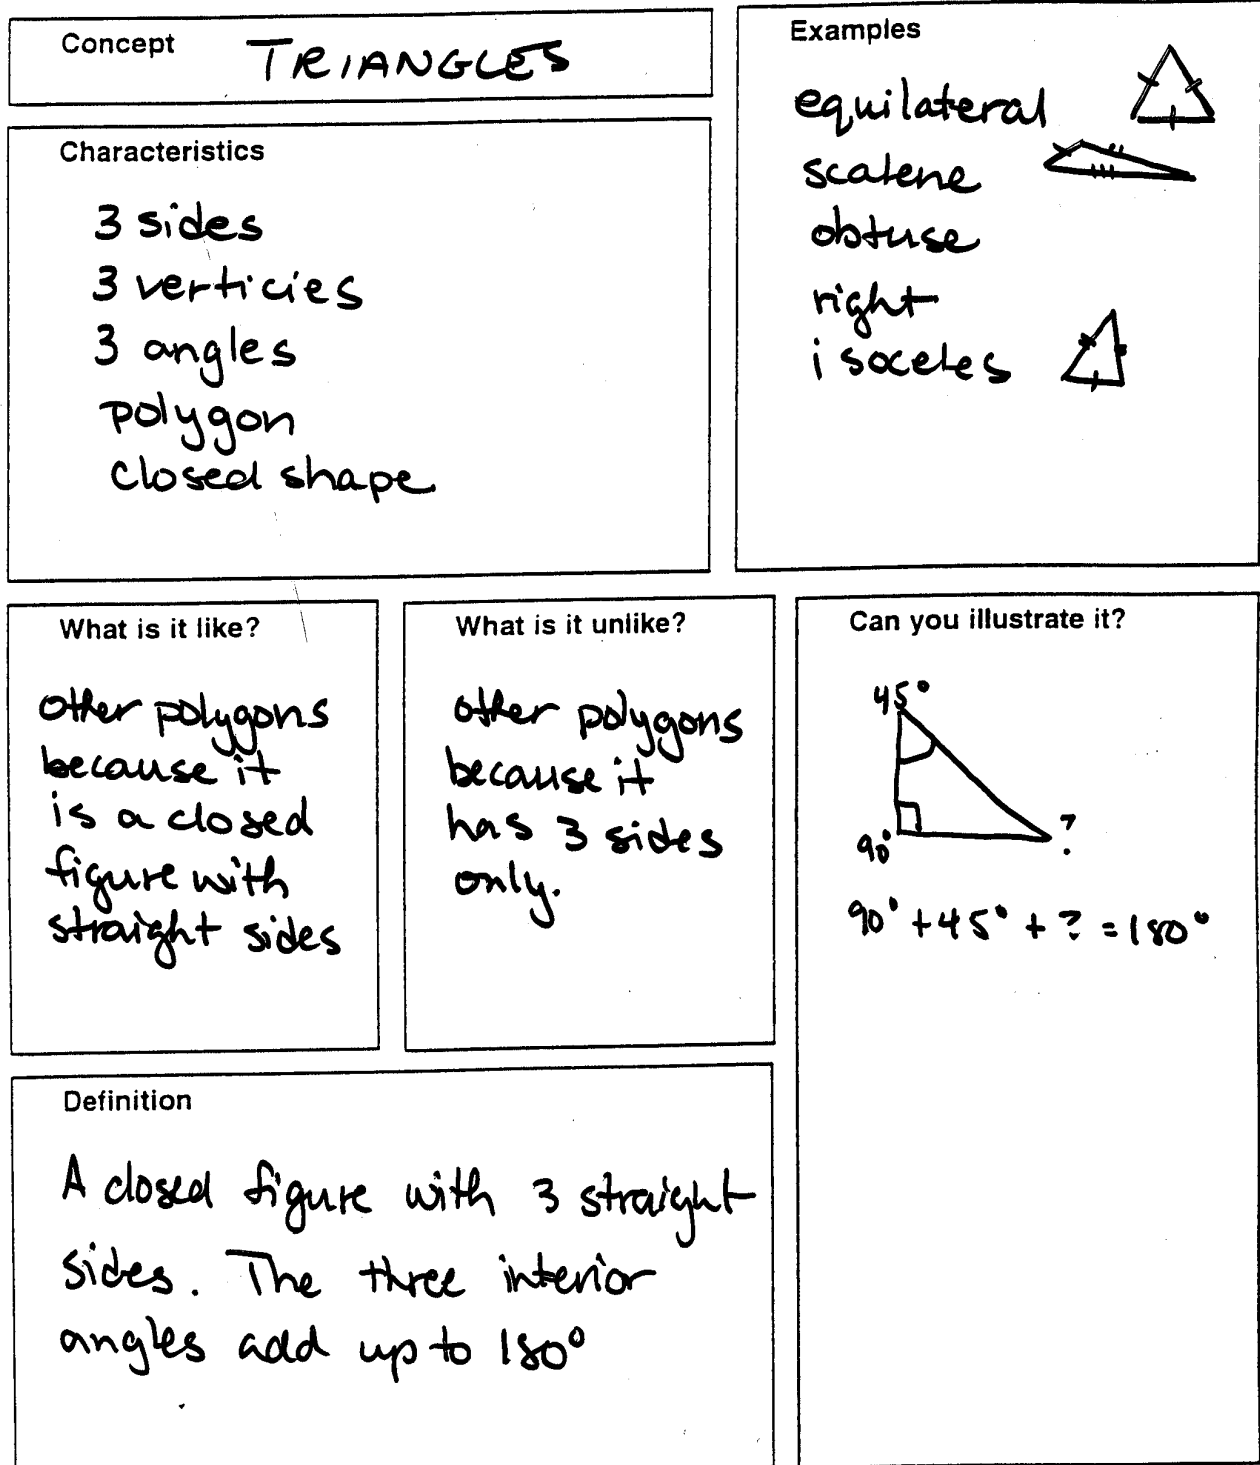 Concept TRIANGLES
Characteristics
3 sides
3 verticies
3 angles
polygon
closed shape
Examples
equilateral
scalene
obtuse
right
isoceles
What is it like?
other polygons
because it
is a closed
figure with
straight sides
What is it unlike?
other polygons
because it
has 3 sides
only.
Can you illustrate it?
45°
90° ?
90° + 45° + ? = 180°
Definition
A closed figure with 3 straight
sides. The three interior
angles add up to 180°